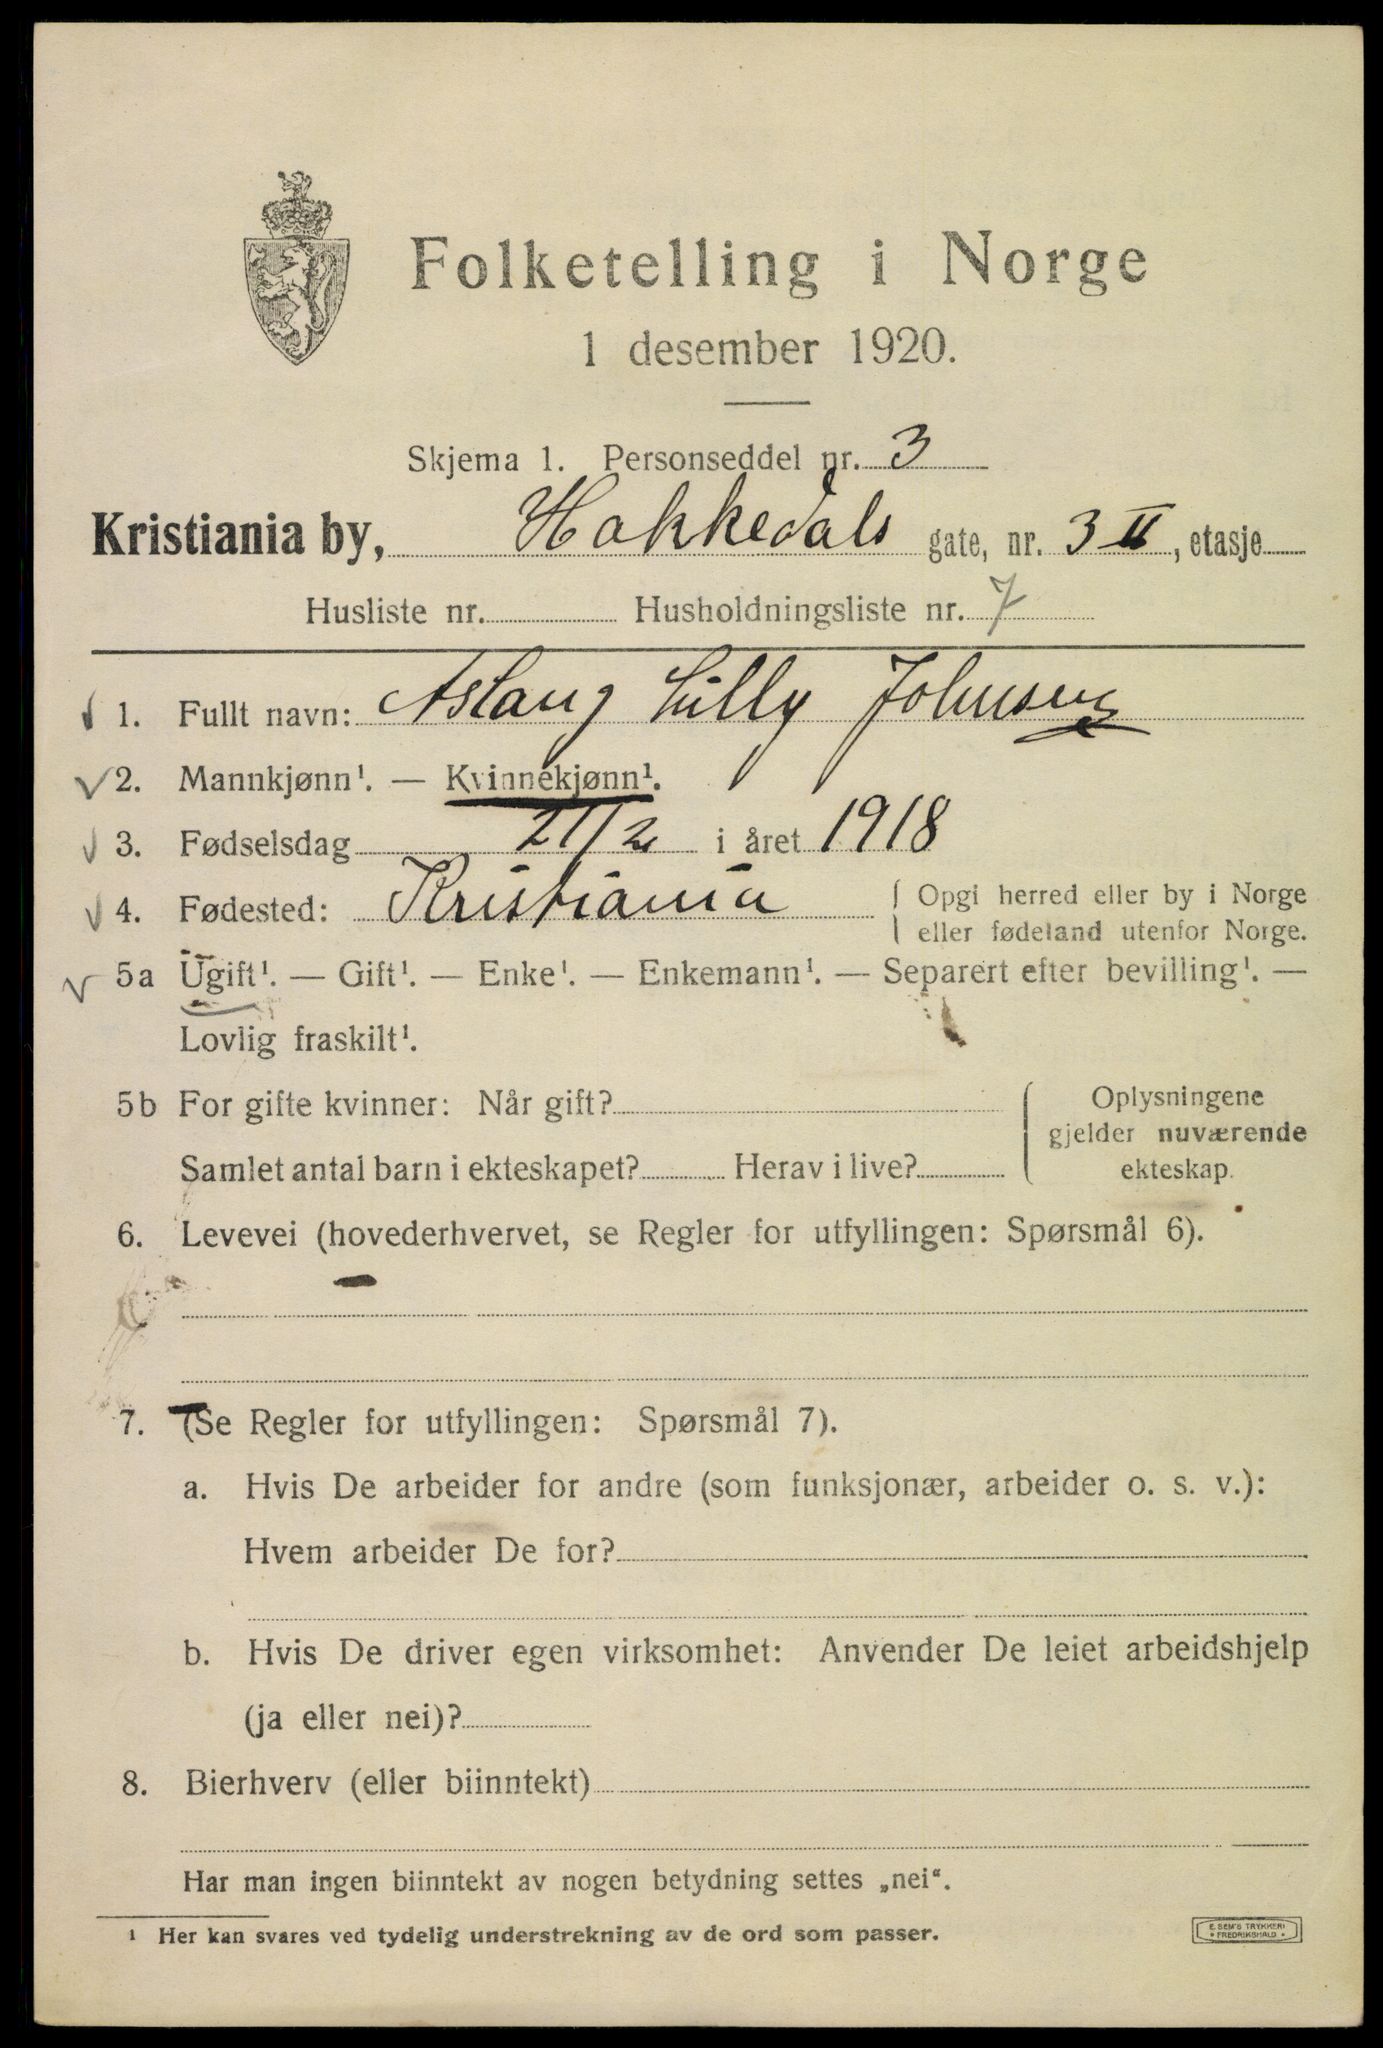 Folketelling i Norge
1 desember 1920.
Skjema 1. Personseddel nr. 3
Kristiania by, Hakkedals gate, nr. 3 II, etasje
Husliste nr. Husholdningsliste nr. 7
1. Fullt navn: Aslaug Lilly Johnsen
2. Mannkjønn¹. — Kvinnekjønn¹.
3. Fødselsdag 21/2 i året 1918
4. Fødested: Kristiania { Opgi herred eller by i Norge
eller fødeland utenfor Norge.
5a Ugift¹. — Gift¹. — Enke¹. — Enkemann¹. — Separert efter bevilling¹. —
Lovlig fraskilt¹.
5b For gifte kvinner: Når gift? { Oplysningene
gjelder nuværende
Samlet antal barn i ekteskapet? Herav i live? ekteskap.
6. Levevei (hovederhvervet, se Regler for utfyllingen: Spørsmål 6).
—
7. (Se Regler for utfyllingen: Spørsmål 7).
a. Hvis De arbeider for andre (som funksjonær, arbeider o. s. v.):
Hvem arbeider De for?
b. Hvis De driver egen virksomhet: Anvender De leiet arbeidshjelp
(ja eller nei)?
8. Bierhverv (eller biinntekt)
Har man ingen biinntekt av nogen betydning settes „nei“.
¹ Her kan svares ved tydelig understrekning av de ord som passer.
E. SEM'S TRYKKERI
• FREDRIKSHALD •